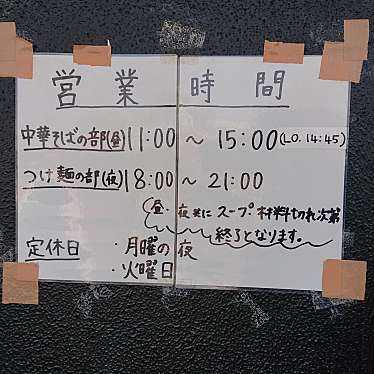 営業時間
中華そばの部(昼) 11:00 ～ 15:00 (LO. 14:45)
つけ麺の部(夜) 18:00 ～ 21:00
昼・夜共に スープ 材料切れ次第
終了となります。
定休日 ・月曜の夜
・火曜日